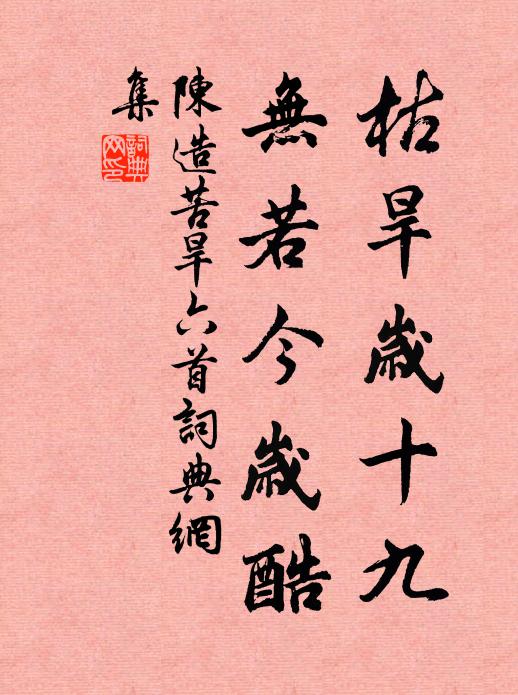 枯旱歲十九
無若今歲酷
陳造苦旱六首詞典網
集
詞典
網印